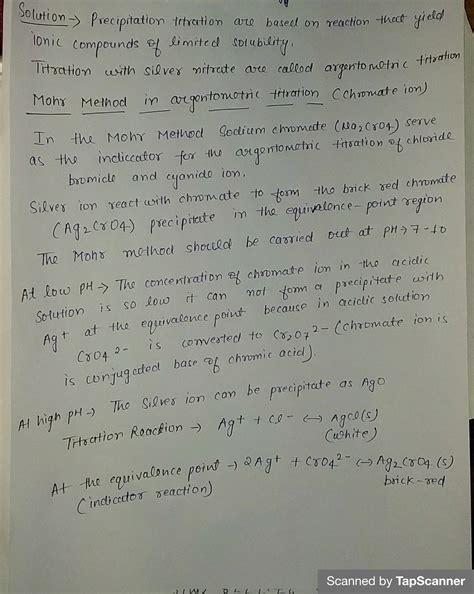 Solution → Precipitation titration are based on reaction that yield
ionic compounds of limited solubility.
Titration with silver nitrate are called argentometric titration
Mohr Method in argentometric titration (chromate ion)
In the Mohr Method Sodium chromate (Na2CrO4) serve
as the indiccator for the argentometric titration of chloride
bromide and cyanide ion.
Silver ion react with chromate to form the brick red chromate
(Ag2CrO4) precipitate in the equivalence-point region
The Mohr method should be carried out at pH → 7-10
At low pH → The concentration of chromate ion in the acidic
solution is so low it can not form a precipitate with
Ag+ at the equivalence point because in acidic solution
CrO4 2- is converted to Cr2O7 2- (chromate ion is
is conjugated base of chromic acid).
At high pH → The Silver ion can be precipitate as AgO
Titration Reaction → Ag+ + Cl- ↔ AgCl(s)
(white)
At the equivalence point → 2Ag+ + CrO4 2- ↔ Ag2CrO4(s)
(indicator reaction) brick-red
Scanned by TapScanner